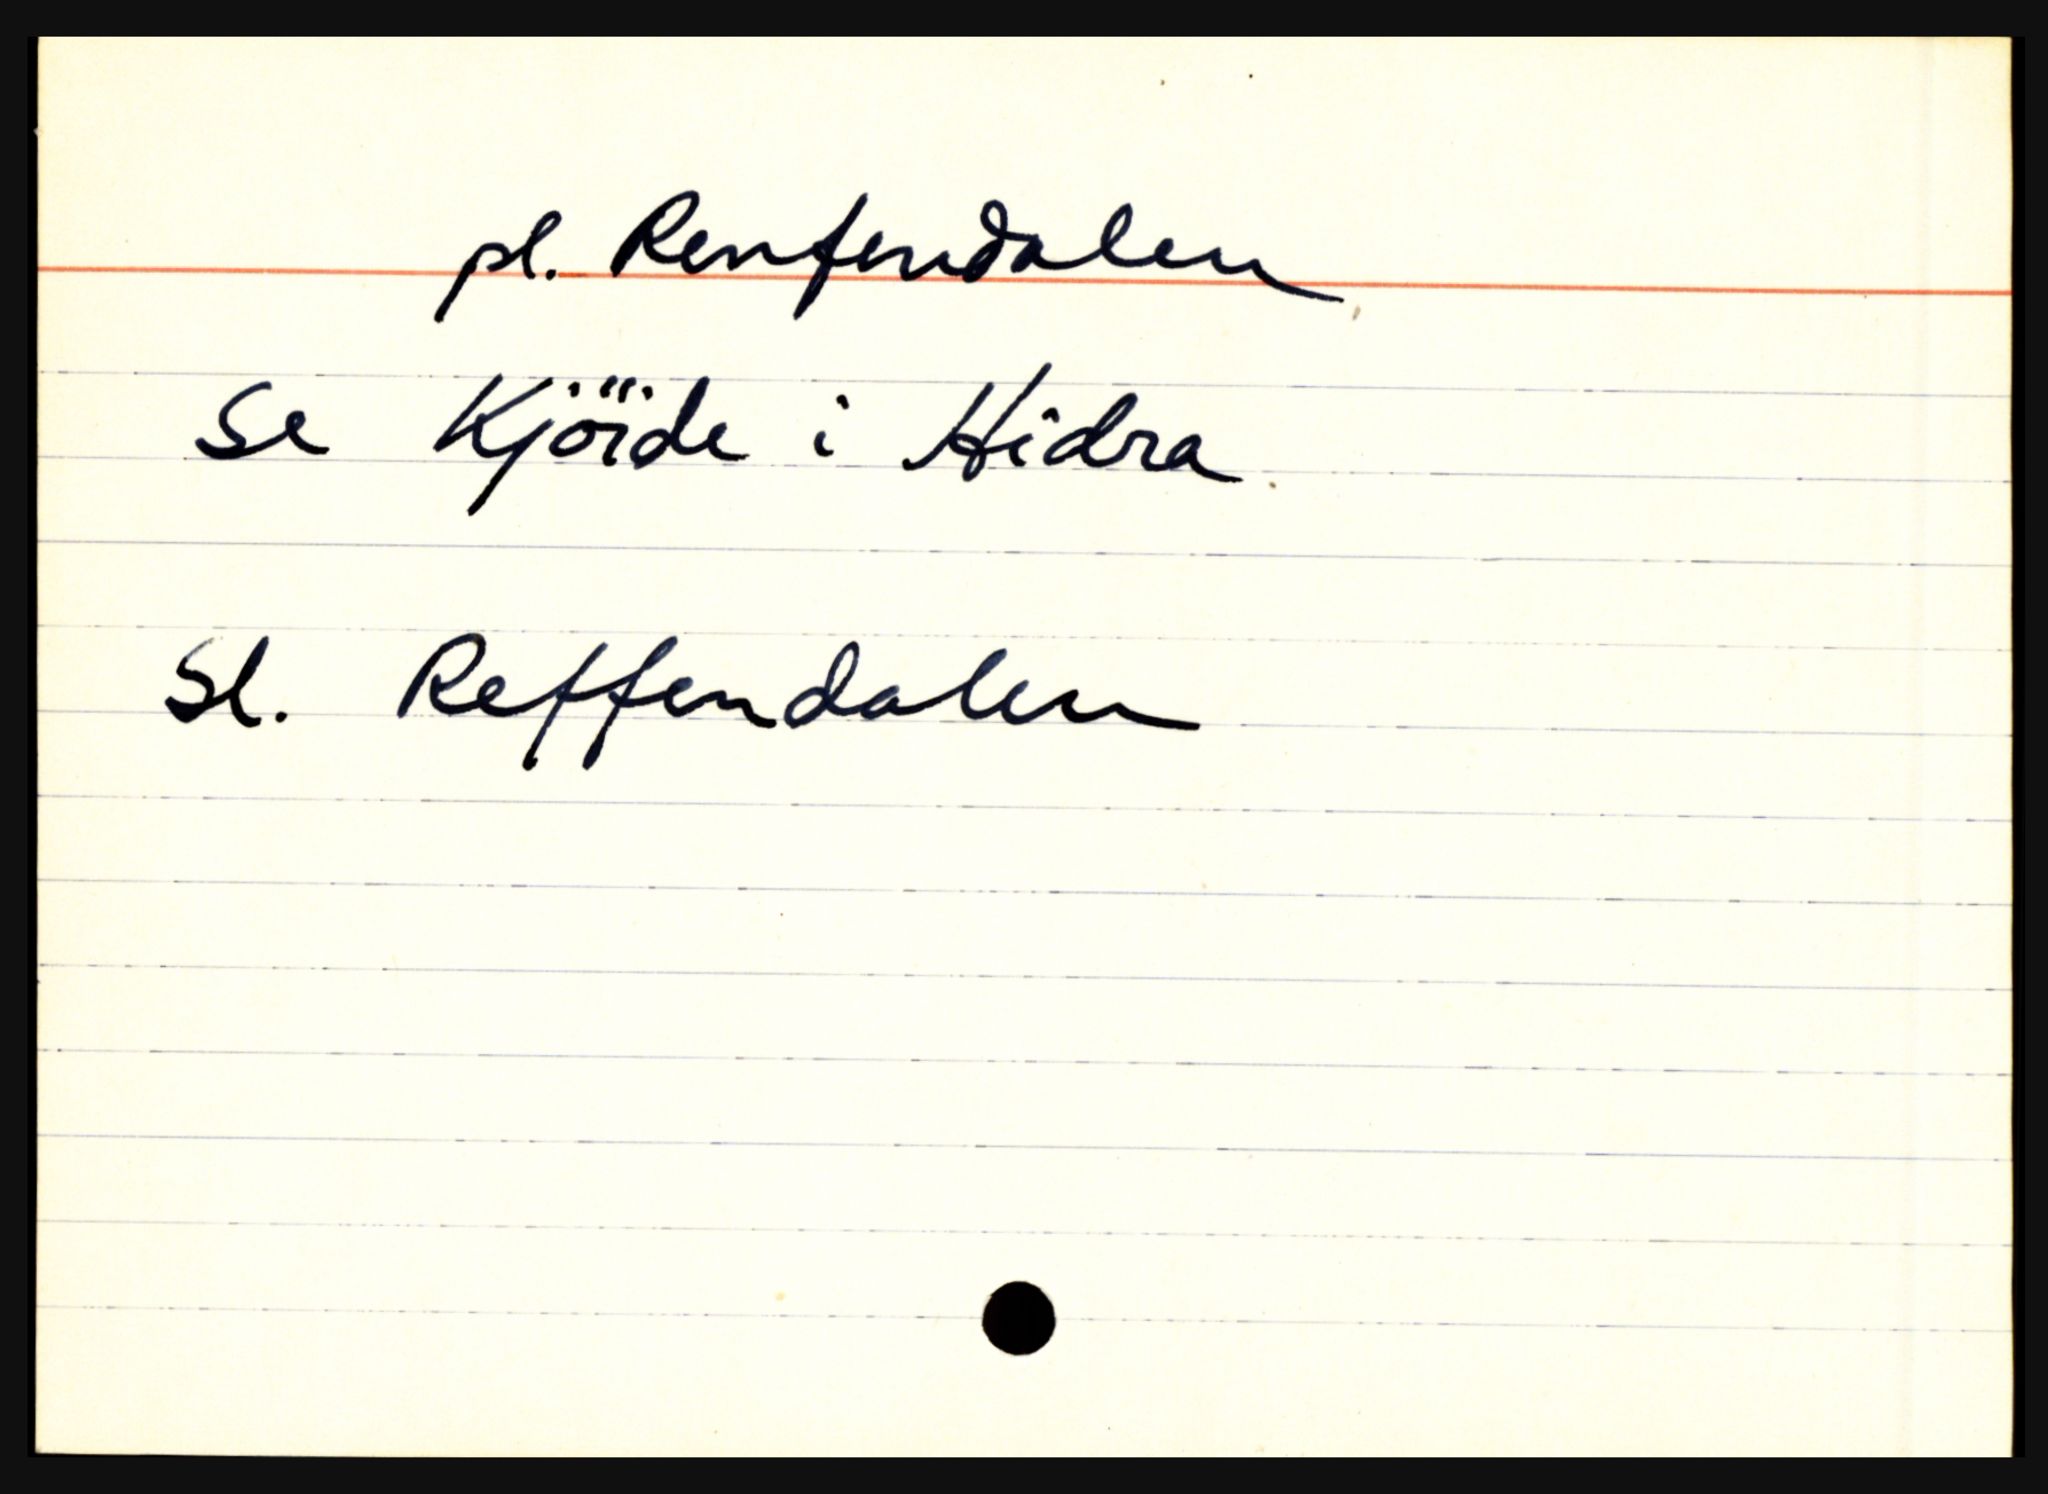 pl. Renfendalen
se Kjöide i Hidra
Sl. Reffendalen